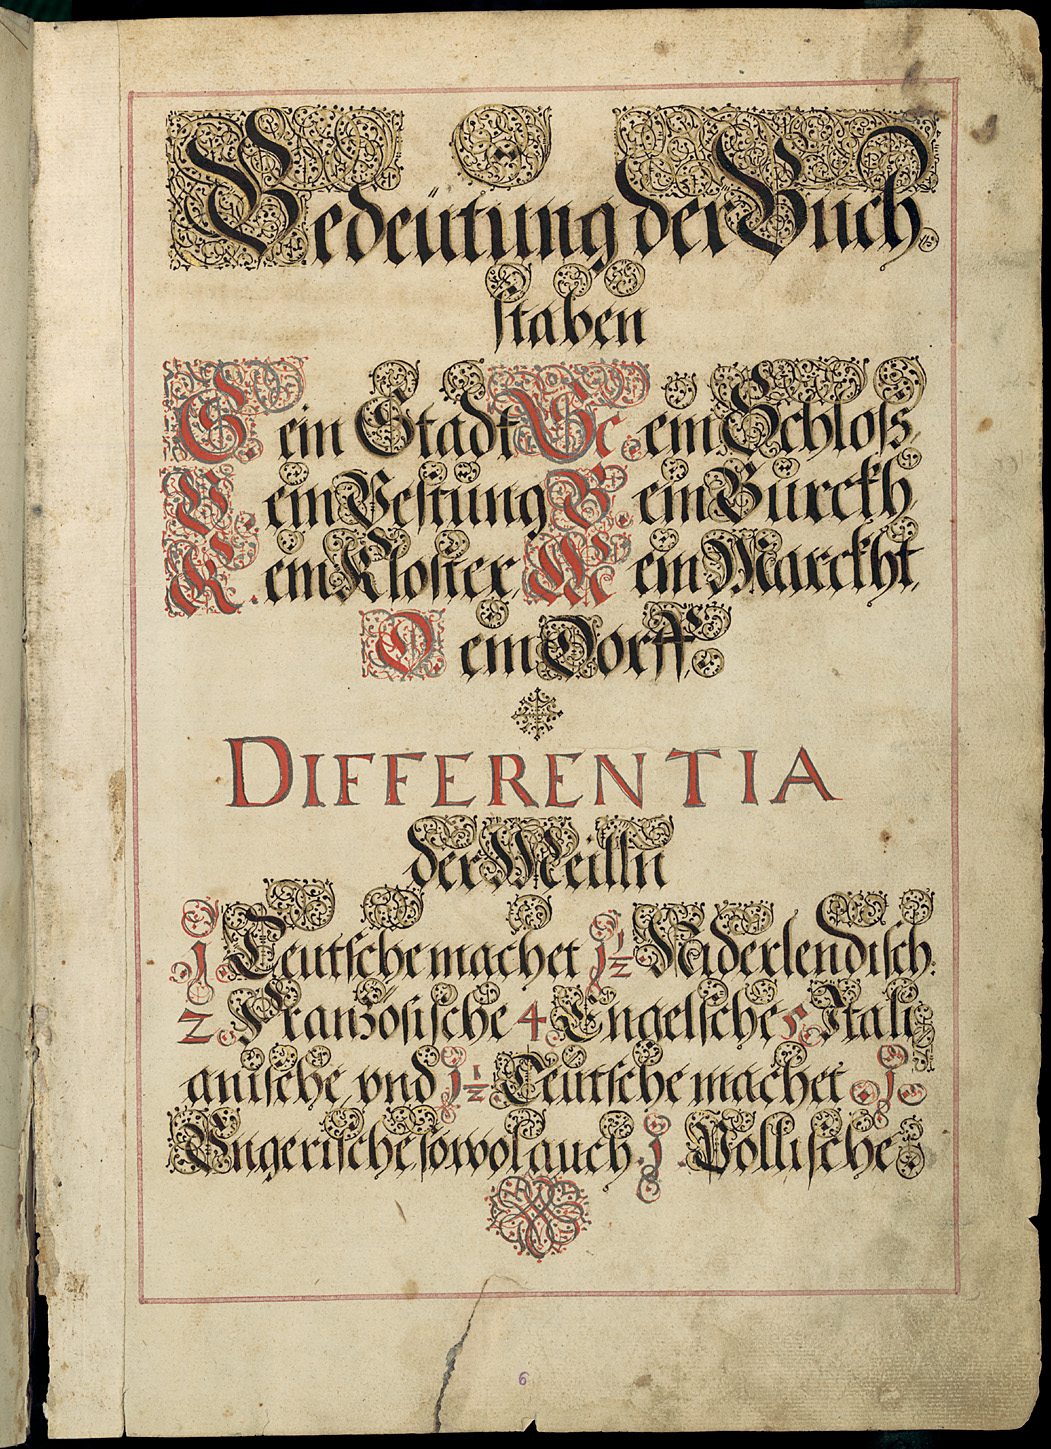 Bedeütung der Buch
staben
S. ein Stadt Sc. ein Schloss.
V. ein Vestung B. ein Burckh
K. ein Kloster, M ein Marckht.
D ein Dorff.
DIFFERENTIA
der Meilln
1. Teutsche machet 1½ Niderlendisch:
2. Französische 4. Engelsche 5. Itali
anische, vnd 1½ Teutsche machet .1.
Vngerische, sowol auch .1. Pollische
6